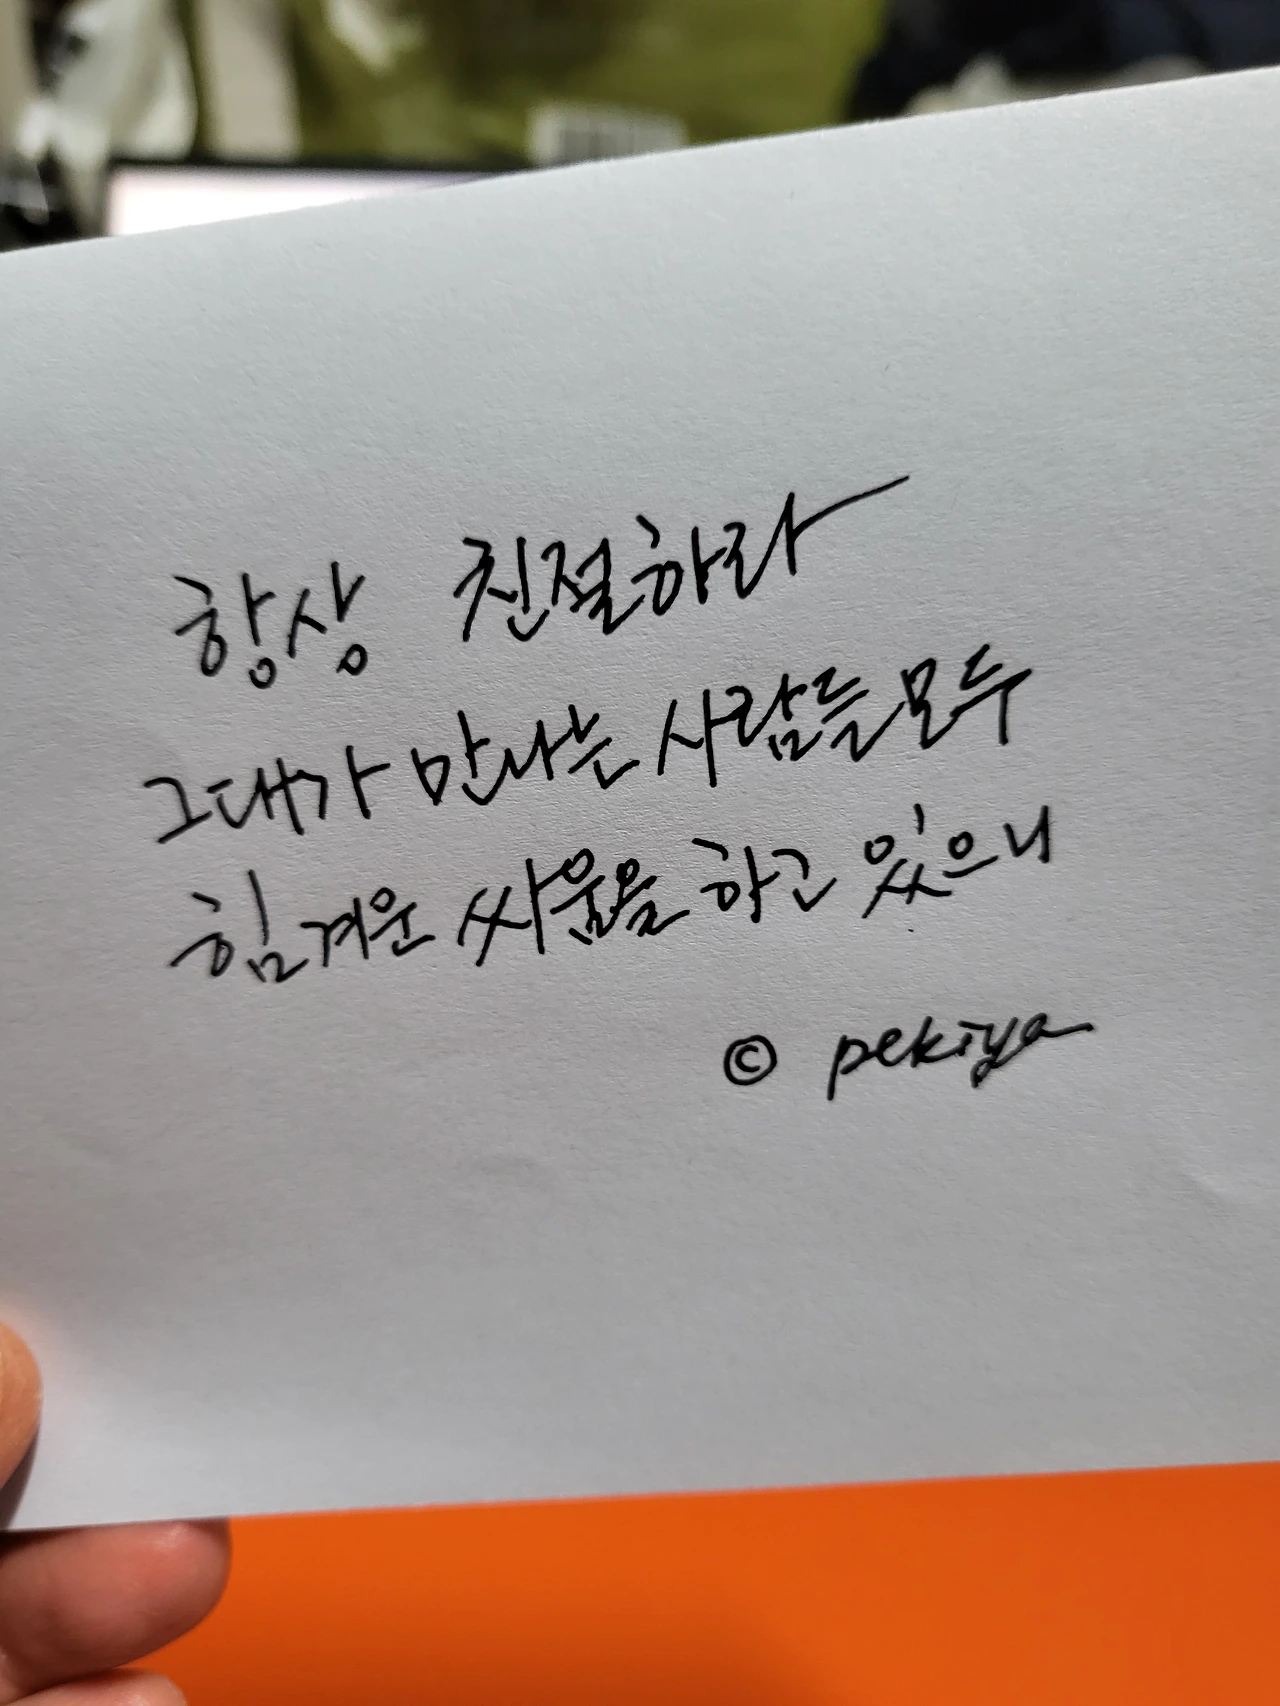 항상 친절하라
그대가 만나는 사람들 모두
힘겨운 싸움을 하고 있으니
© pekiya